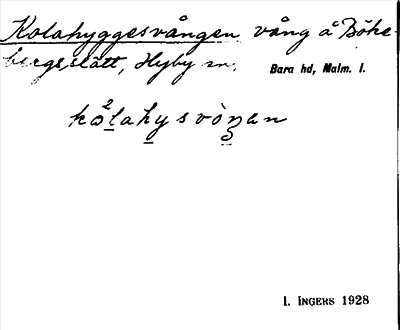 Kolahyggesvången vång å Böke-
bergsslätt, Hyby sn.
Bara hd, Malm. l.
kə²lahysvòŋən
I. INGERS 1928